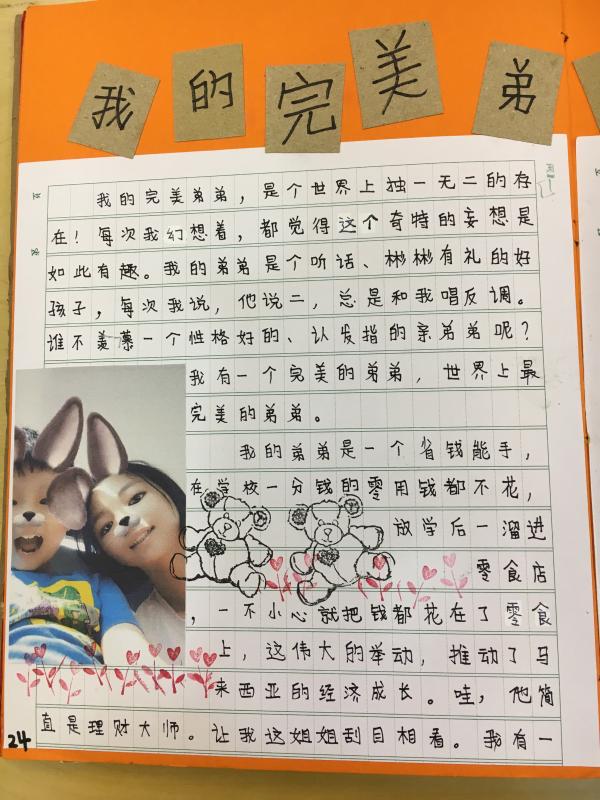 我的完美弟
我的完美弟弟，是个世界上独一无二的存
在！每次我幻想着，都觉得这个奇特的妄想是
如此有趣。我的弟弟是个听话、彬彬有礼的好
孩子，每次我说，他说二，总是和我唱反调。
谁不羡慕一个性格好的、认发指的亲弟弟呢？
我有一个完美的弟弟，世界上最
完美的弟弟。
我的弟弟是一个省钱能手，
在学校一分钱的零用钱都不花，
放学后一溜进
零食店
，一不小心就把钱都花在了零食
上，这伟大的举动，推动了马
来西亚的经济成长。哇，他简
直是理财大师。让我这姐姐刮目相看。我有一
24